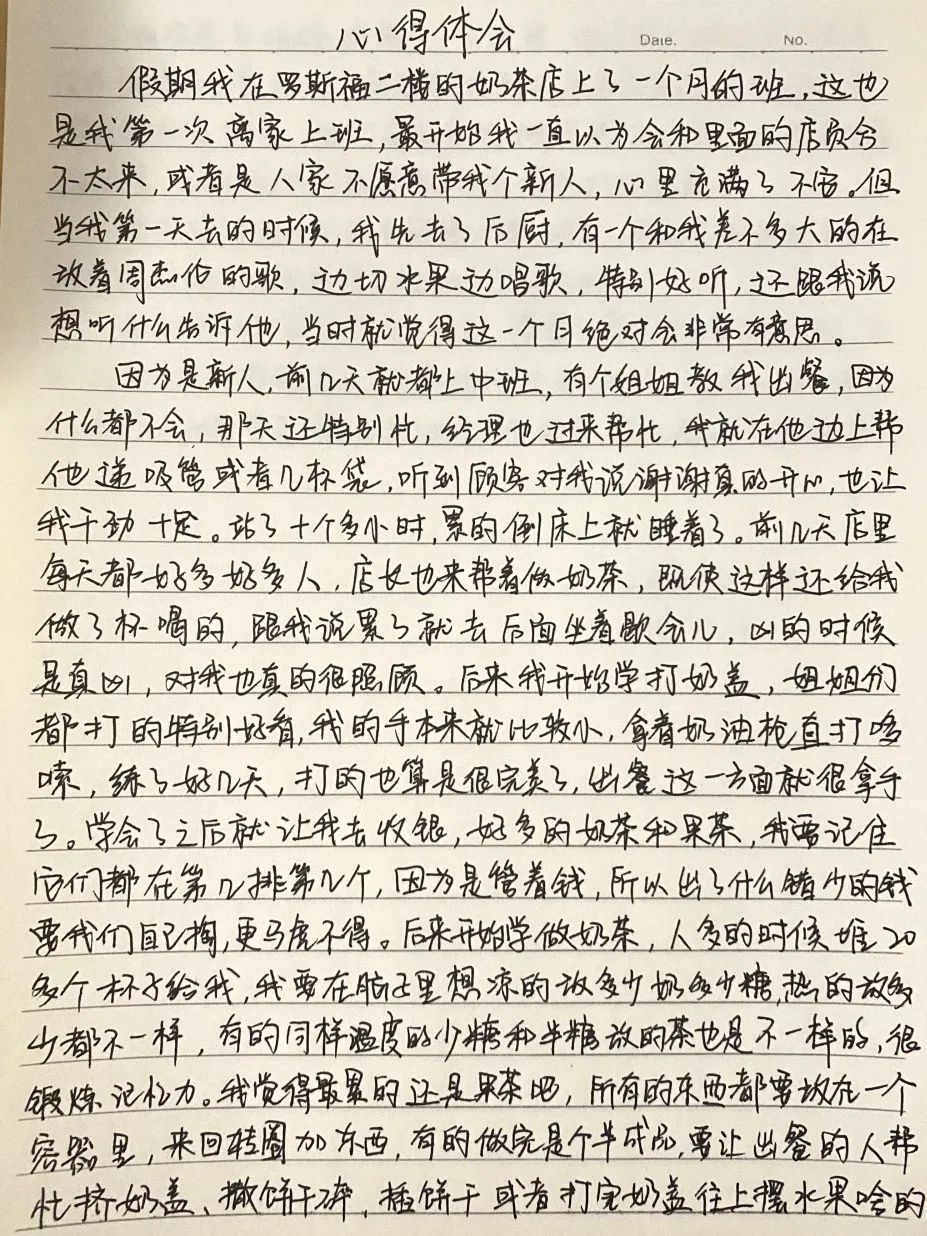 心得体会
Date. No.
假期我在罗斯福二楼的奶茶店上了一个月的班,这也
是我第一次离家上班,最开始我一直以为会和里面的店员合
不太来,或者是人家不愿意带我个新人,心里充满了不安。但
当我第一天去的时候,我先去了后厨,有一个和我差不多大的在
放着周杰伦的歌,边切水果边唱歌,特别好听,还跟我说
想听什么告诉他,当时就觉得这一个月绝对会非常有意思。
因为是新人,前几天就都上中班,有个姐姐教我出餐,因为
什么都不会,那天还特别忙,经理也过来帮忙,我就在他边上帮
他递吸管或者几杯袋,听到顾客对我说谢谢真的开心,也让
我干劲十足。站了十个多小时,累的倒床上就睡着了。前几天店里
每天都好多好多人,店长也来帮着做奶茶,既使这样还给我
做了杯喝的,跟我说累了就去后面坐着歇会儿,凶的时候
是真凶,对我也真的很照顾。后来我开始学打奶盖,姐姐们
都打的特别好看,我的手本来就比较小,拿着奶油枪直打哆
嗦,练了好几天,打的也算是很完美了,出餐这一方面就很拿手
了。学会了之后就让我去收银,好多的奶茶和果茶,我要记住
它们都在第几排第几个,因为是管着钱,所以出了什么错少的钱
要我们自己掏,更马虎不得。后来开始学做奶茶,人多的时候堆20
多个杯子给我,我要在脑子里想凉的放多少奶多少糖,热的放多
少都不一样,有的同样温度的少糖和半糖放的茶也是不一样的,很
锻炼记忆力。我觉得最累的还是果茶吧,所有的东西都要放在一个
容器里,来回转圈加东西,有的做完是个半成品,要让出餐的人帮
忙挤奶盖、撒饼干碎,插饼干或者打完奶盖往上摆水果啥的